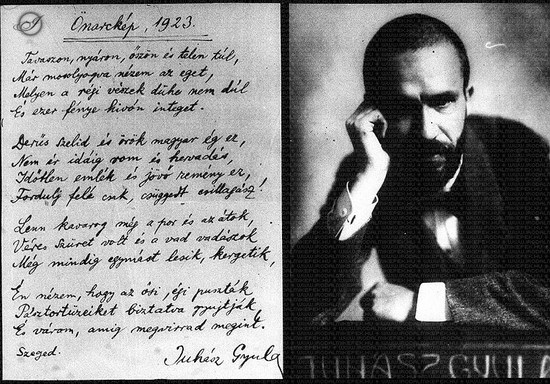 Önarckép, 1923.
Tavaszon, nyáron, őszön és telen túl,
Már mosolyogva nézem az eget,
Melyen a régi vészek dühe nem dúl
És ezer fénye hivón integet.
Derüs szelid és örök magyar ég ez,
Nem ér idáig rom és hervadás,
Időtlen emlék és jövő remény ez,
Fordulj felé csak, csüggedt csillagász!
Lenn kavarog még a por és az átok,
Véres szüret volt és a vad vadászok
Még mindig egymást lesik, kergetik,
Én nézem, hogy az ősi, égi puszták
Pásztortüzeiket biztatva gyujtják
És várom, amig megvirrad megint.
Szeged.
Juhász Gyula
JUHÁSZ GYULA